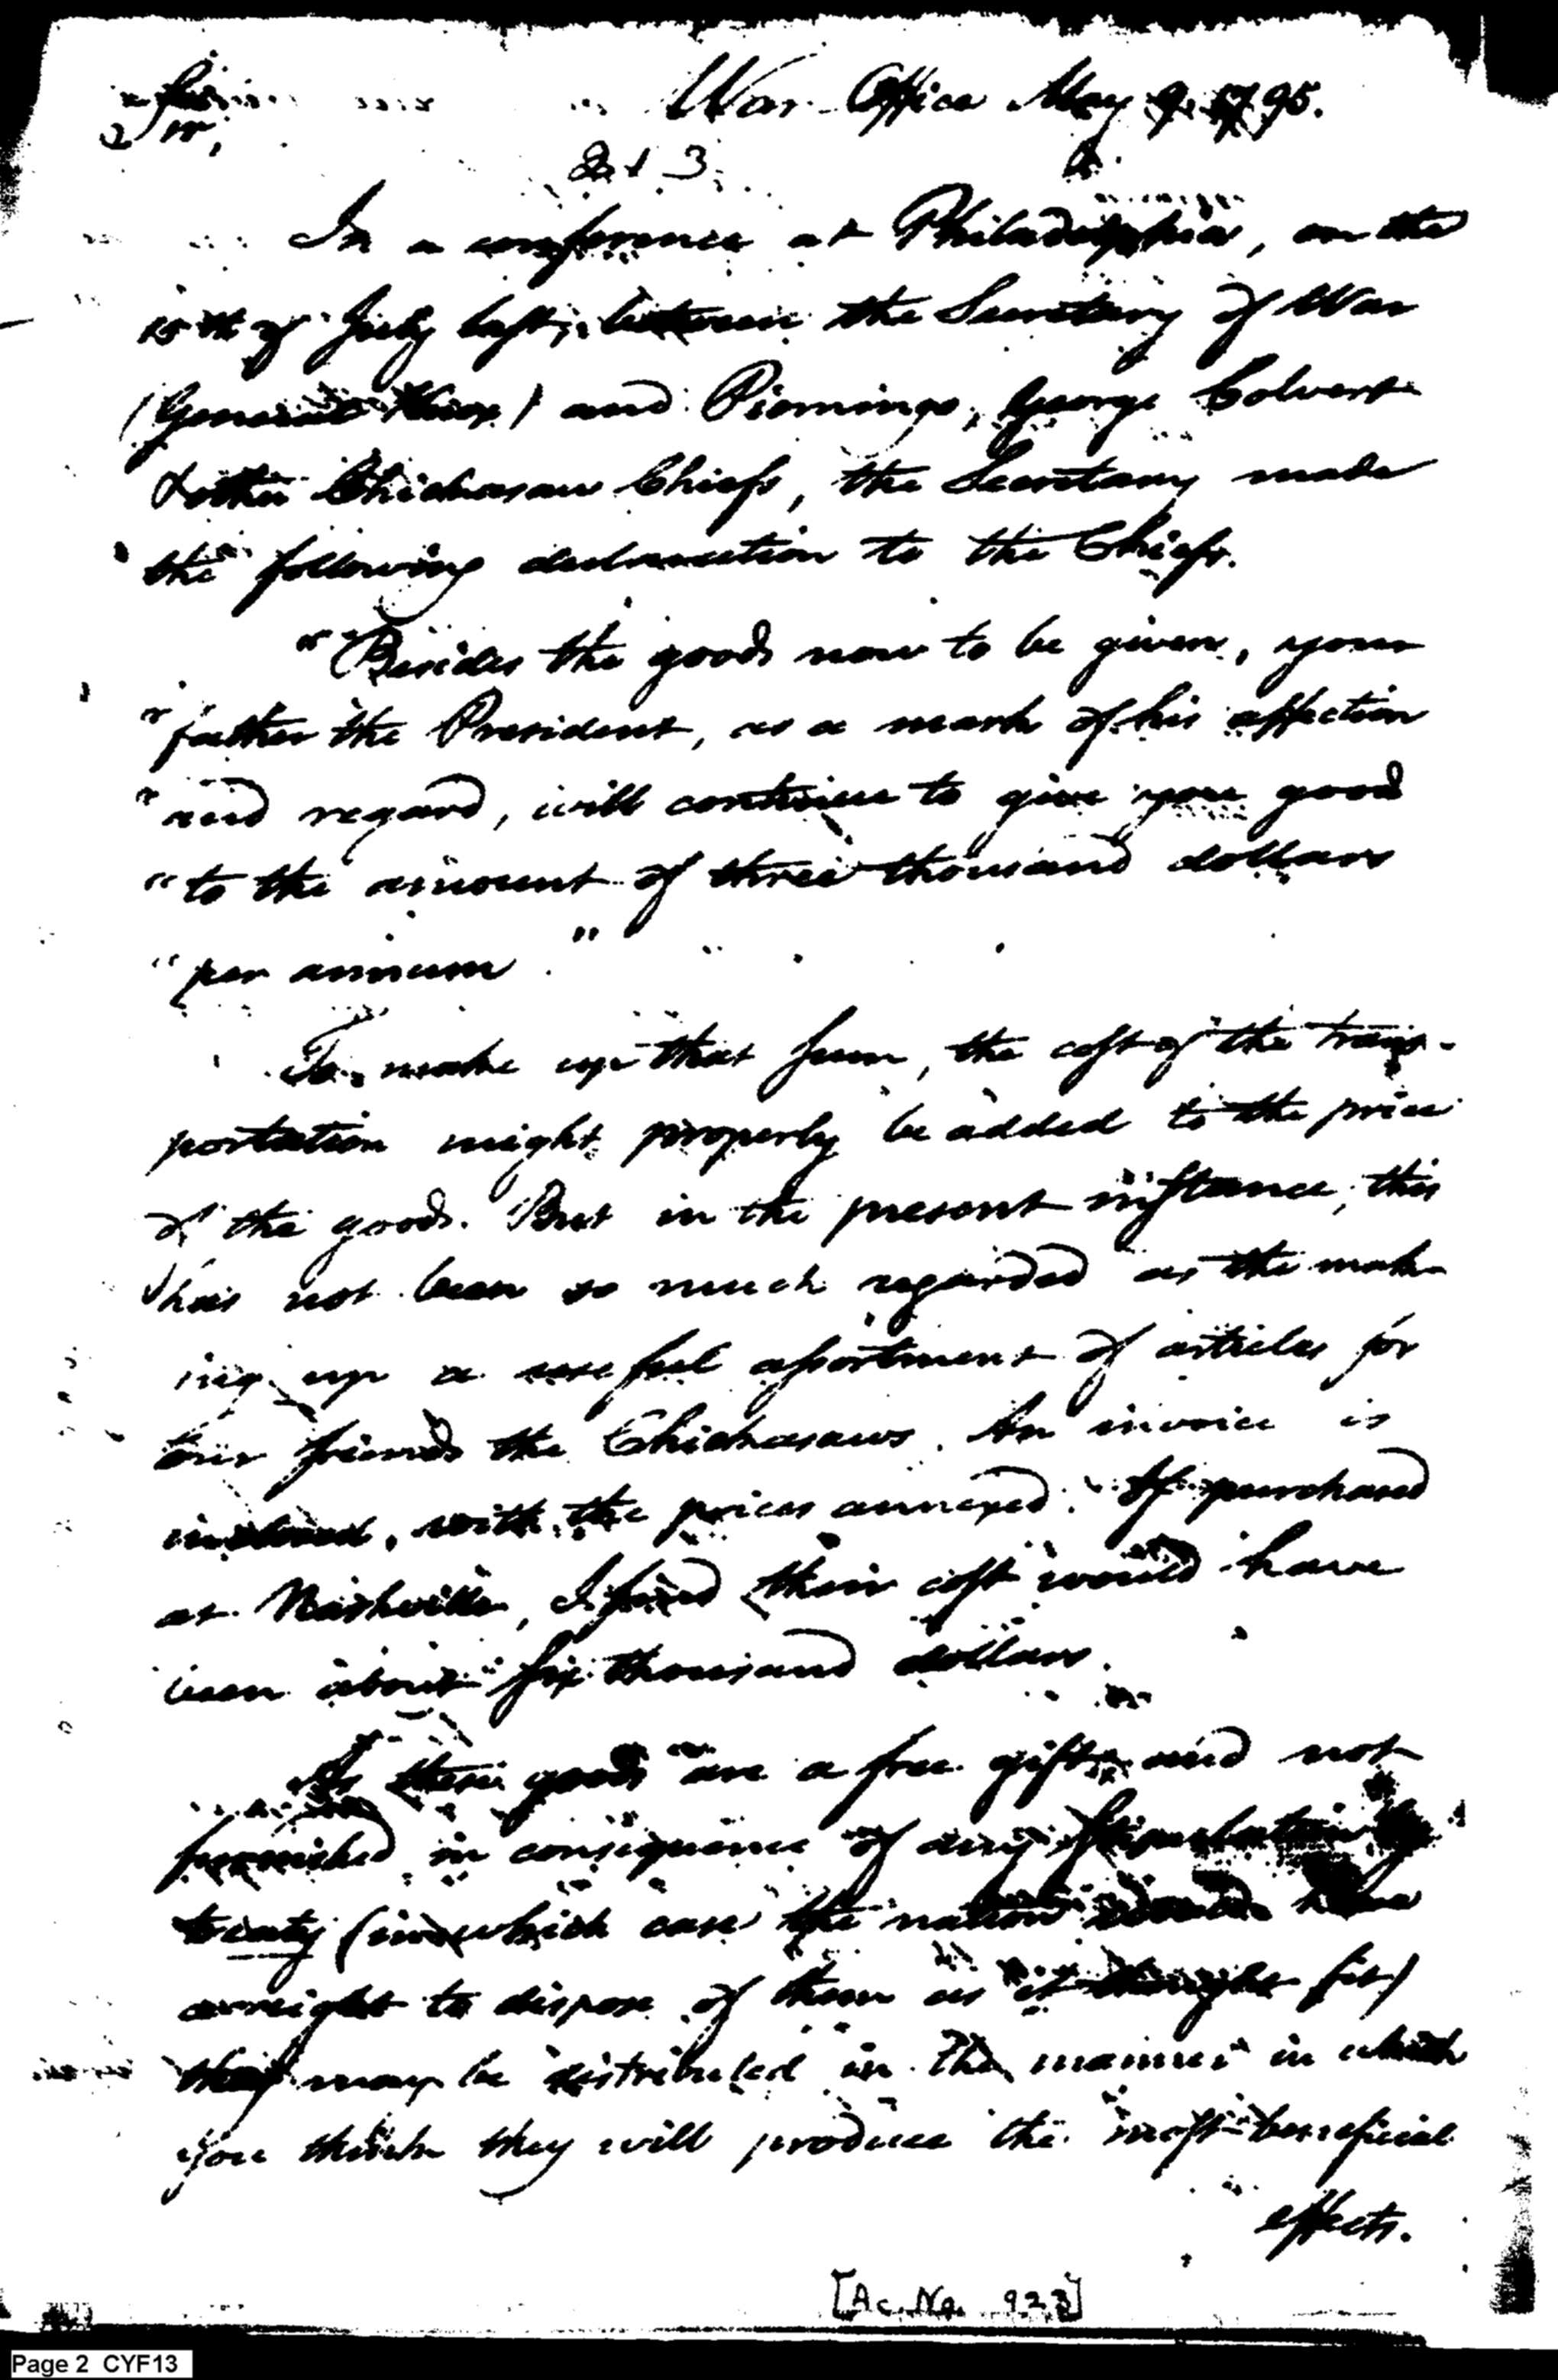 War Office May 9. 1795.
Sir,
2 & 3
In a conference at Philadelphia, on the
of July last, between the Secretary of War
(General Knox) and Piomingo, George Colvert
& other Chickasaw Chiefs, the Secretary made
the following declaration to the Chiefs.
"Besides the goods now to be given, your
"father the President, as a mark of his affection
"and regard, will continue to give you good
"to the amount of three thousand dollars
"per annum."
To make up that sum, the cost of the trans-
portation might properly be added to the price
of the goods. But in the present instance, this
has not been so much regarded as the mak-
ing up a useful assortment of articles for
our friends the Chickasaws. An invoice is
inclosed, with the prices annexed. If purchased
at Nashville, I find their cost would have
been about six thousand dollars.
As these goods are a free gift, and not
furnished in consequence of any stipulation by
treaty (in which case the nation would have
a right to dispose of them as it thought fit)
they may be distributed in the manner in which
you think they will produce the most beneficial
effects.
[Ac. No. 923]
Page 2 CYF13